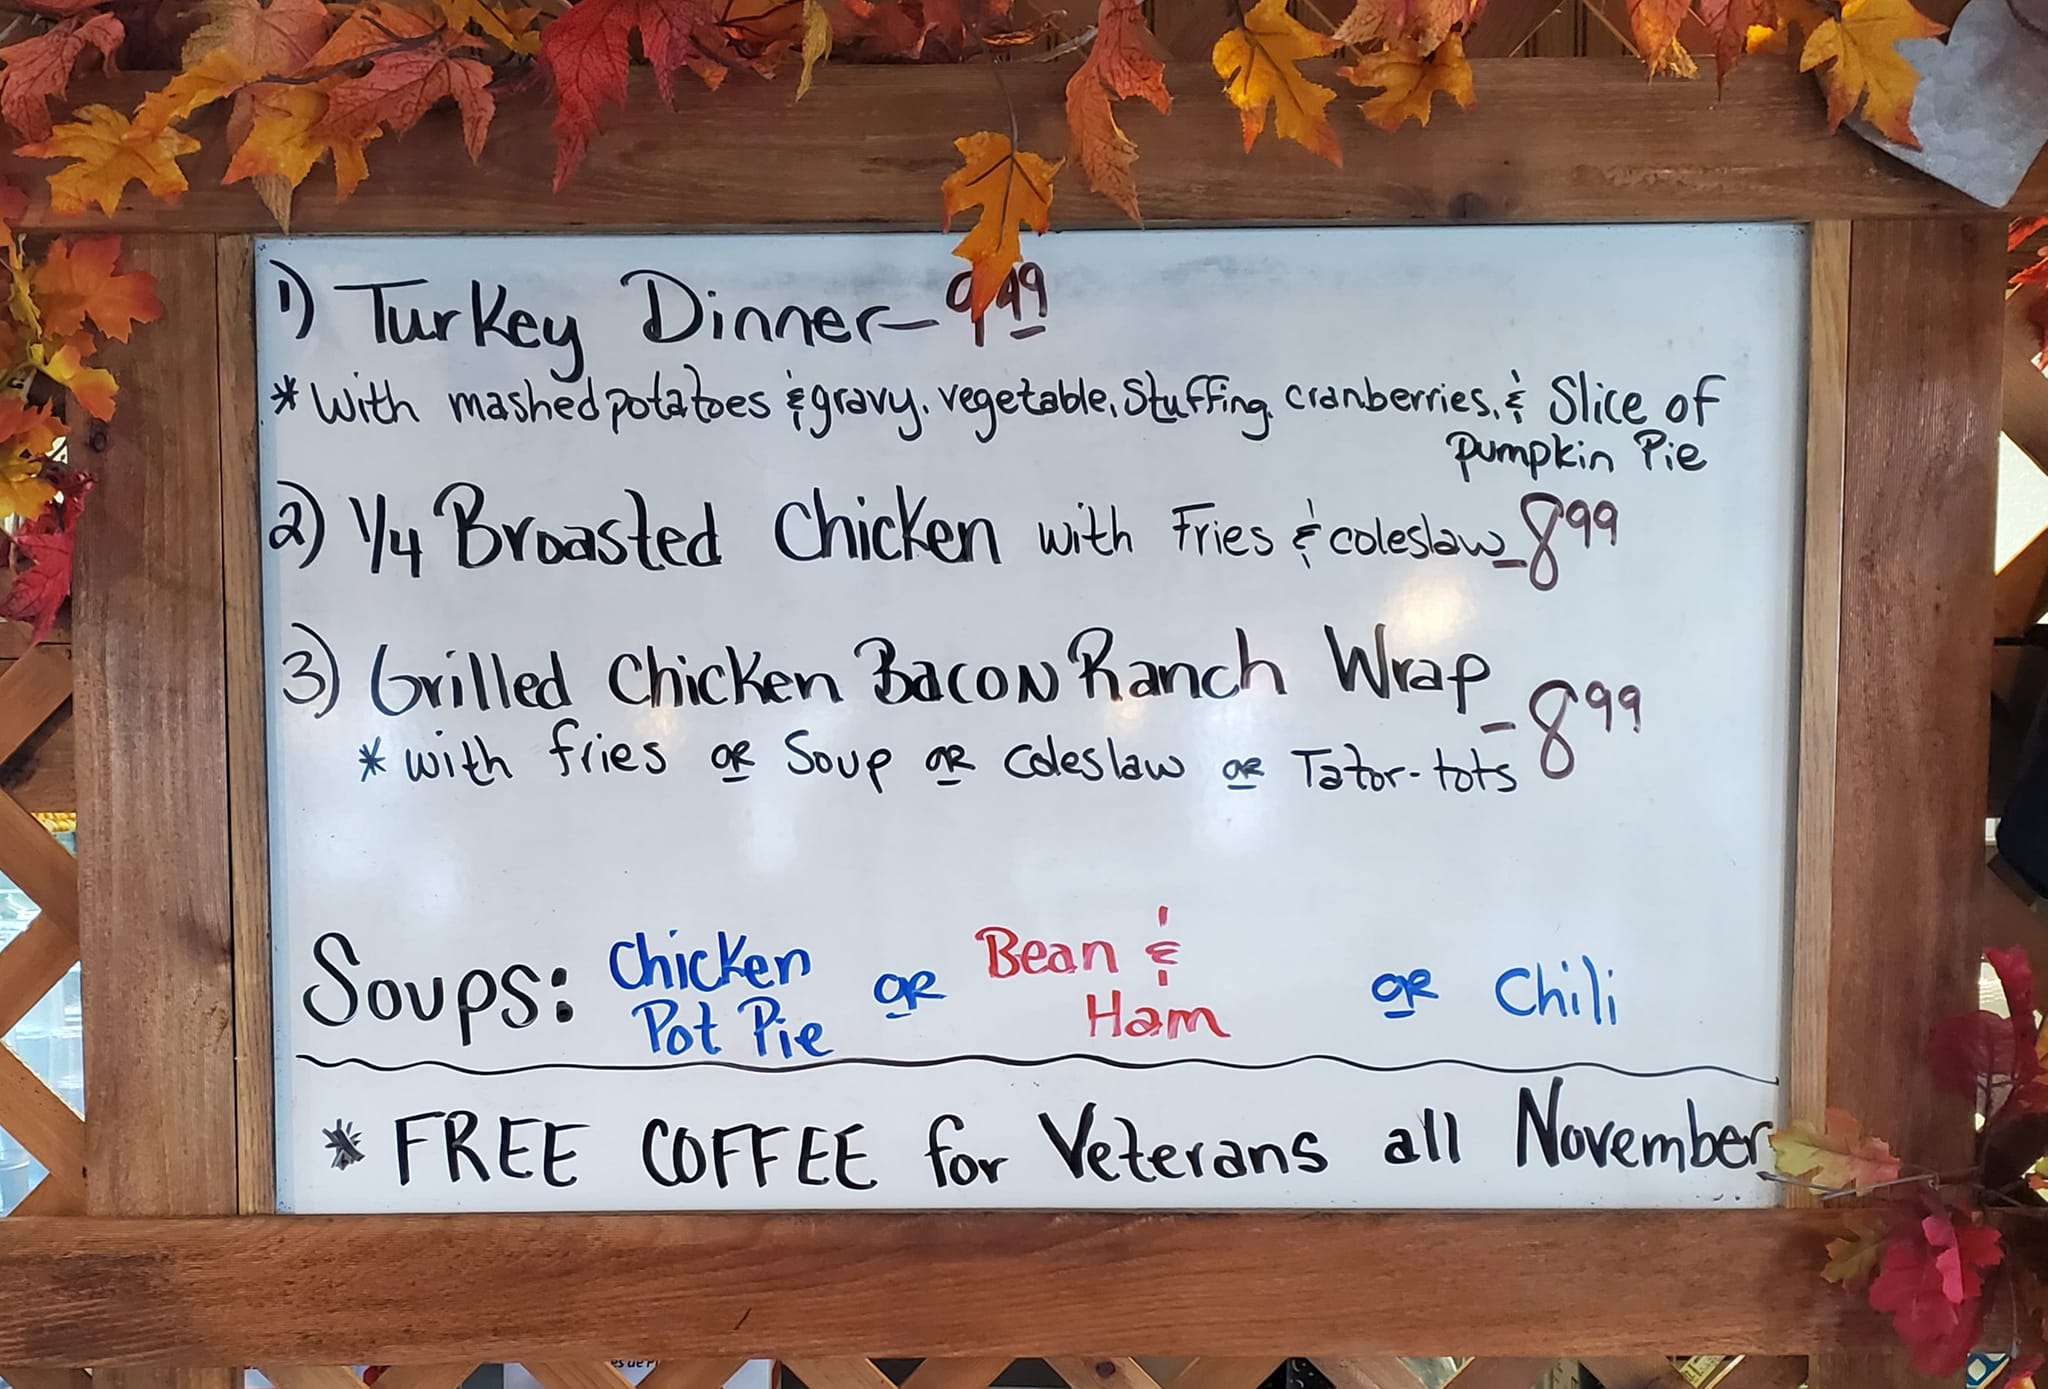 1) Turkey Dinner - 9.99
* With mashed potatoes & gravy, vegetable, Stuffing, cranberries, & Slice of
pumpkin Pie
2) 1/4 Broasted Chicken with Fries & coleslaw - 8 99
3) Grilled Chicken Bacon Ranch Wrap - 8 99
* with fries or Soup or coleslaw or Tator-tots
Soups: Chicken Pot Pie or Bean & Ham or Chili
* FREE COFFEE for Veterans all November